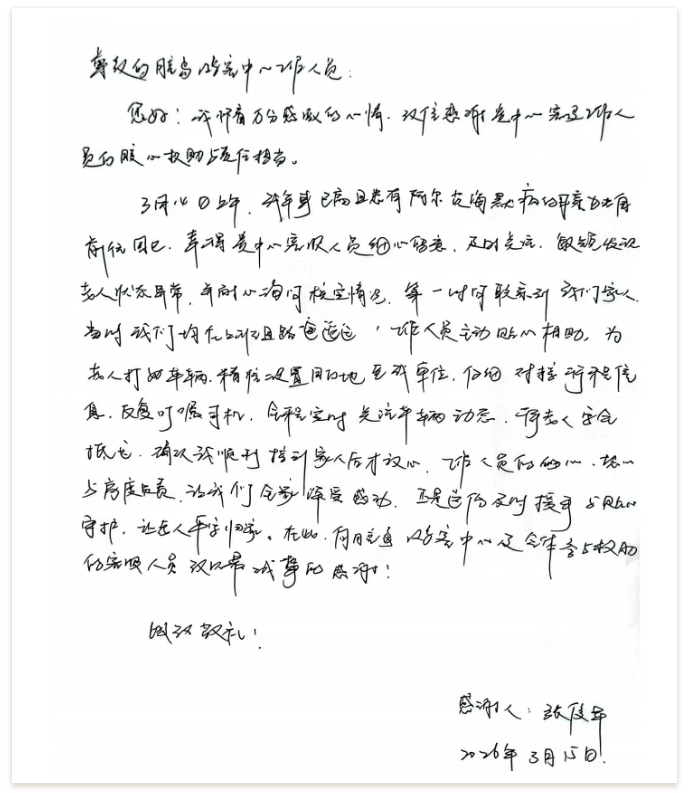 尊敬的胶岛游客中心工作人员：
您好！我怀着万分感激的心情，致信感谢贵中心客运工作人
员的热心救助与责任担当。
3月14日上午，我年事已高且患有阿尔茨海默病的母亲
前往，幸得贵中心客服人员细心，及时关注，敏锐发现
老人状态异常，并耐心询问核实情况，第一时间联系到我们家人
当时我们均在且路途遥远，工作人员主动贴心相助，为
老人打好车辆，精准设置目的地至我单位，仔细对接行程信
息，反复叮嘱司机，全程实时关注车辆动态，待老人安全
抵达，确认我顺利接到家人后才放心，工作人员的细心、热心
与高度负责，让我们全家深受感动，正是这份及时援手与贴心
守护，让老人平安归家。在此，向游客中心及全体参与救助
的客服人员致以最诚挚的感谢！
此致敬礼！
感谢人：张
2026年3月15日.